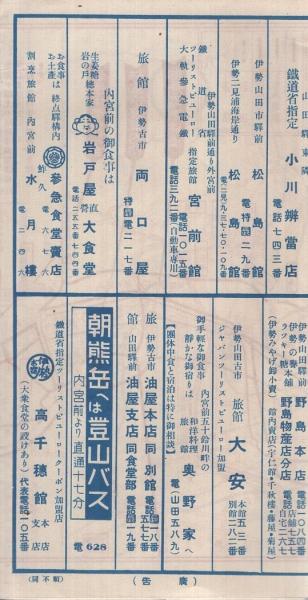 山田驛東隣
鐵道省指定 小川辨當店
電話七四三番
伊勢山田市驛前 松島館
電特二九番
伊勢二見浦海岸通り 松島館
伊勢山田市驛前通り外宮前
鐵道省
ツーリストビューロー
大軌參急電鐵
指定旅館 宮前館
電話一〇一五番
電話三九二番(自動車専用)
旅館 伊勢古市 両口屋
電特二一七番
内宮前の御食事は
生姜糖總本家
岩の戸
岩戸屋 直營 大食堂
電話二五五番
お食事は 終点驛構内
お土産
參急食堂賣店
電六七六
割烹旅館 内宮前 水月樓
電二四六
野島本店
電話一〇八四番
伊勢山田驛前
野島物産店分店
(伊勢みやげ卸小賣)
館内賣店(宇仁館・千秋樓・藤屋・菊屋)
伊勢山田古市 旅館 大安
本館五三番
別館二八二番
ジャパンツーリストビューロー加盟
御手輕な御食事
靜かな御宿りは
内宮前五十鈴川畔の
和洋料理
旅館 奥野家へ
電(山田五八九)
【團体中食と宿泊は特に御相談】
旅館
伊勢古市 油屋本店 同別館
山田驛前 油屋支店 同食堂部
朝熊岳へは登山バス
内宮前より直通十七分
電628
鐵道省指定ツーリストビューロークーポン加盟店
高千穂館 本店 支店
(大衆食堂の設けあり)
代表電話一〇五番
(順不同)
(廣告)